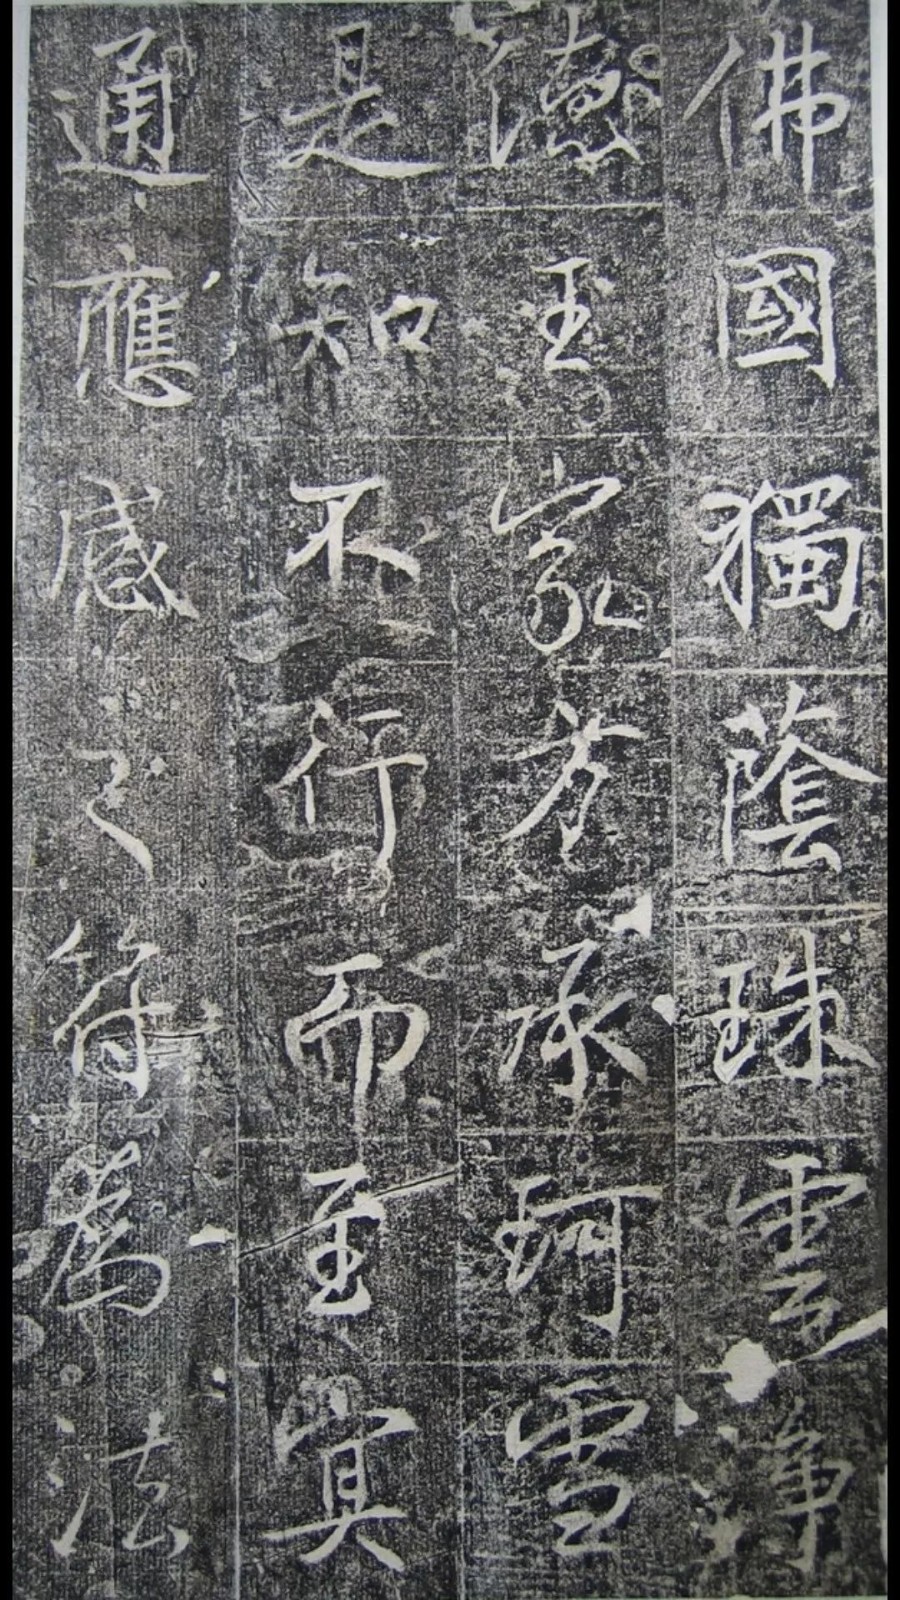 佛國獨蔭珠雲淨
德王家方承珂雪
是知不行而至寘
通應感之符為法